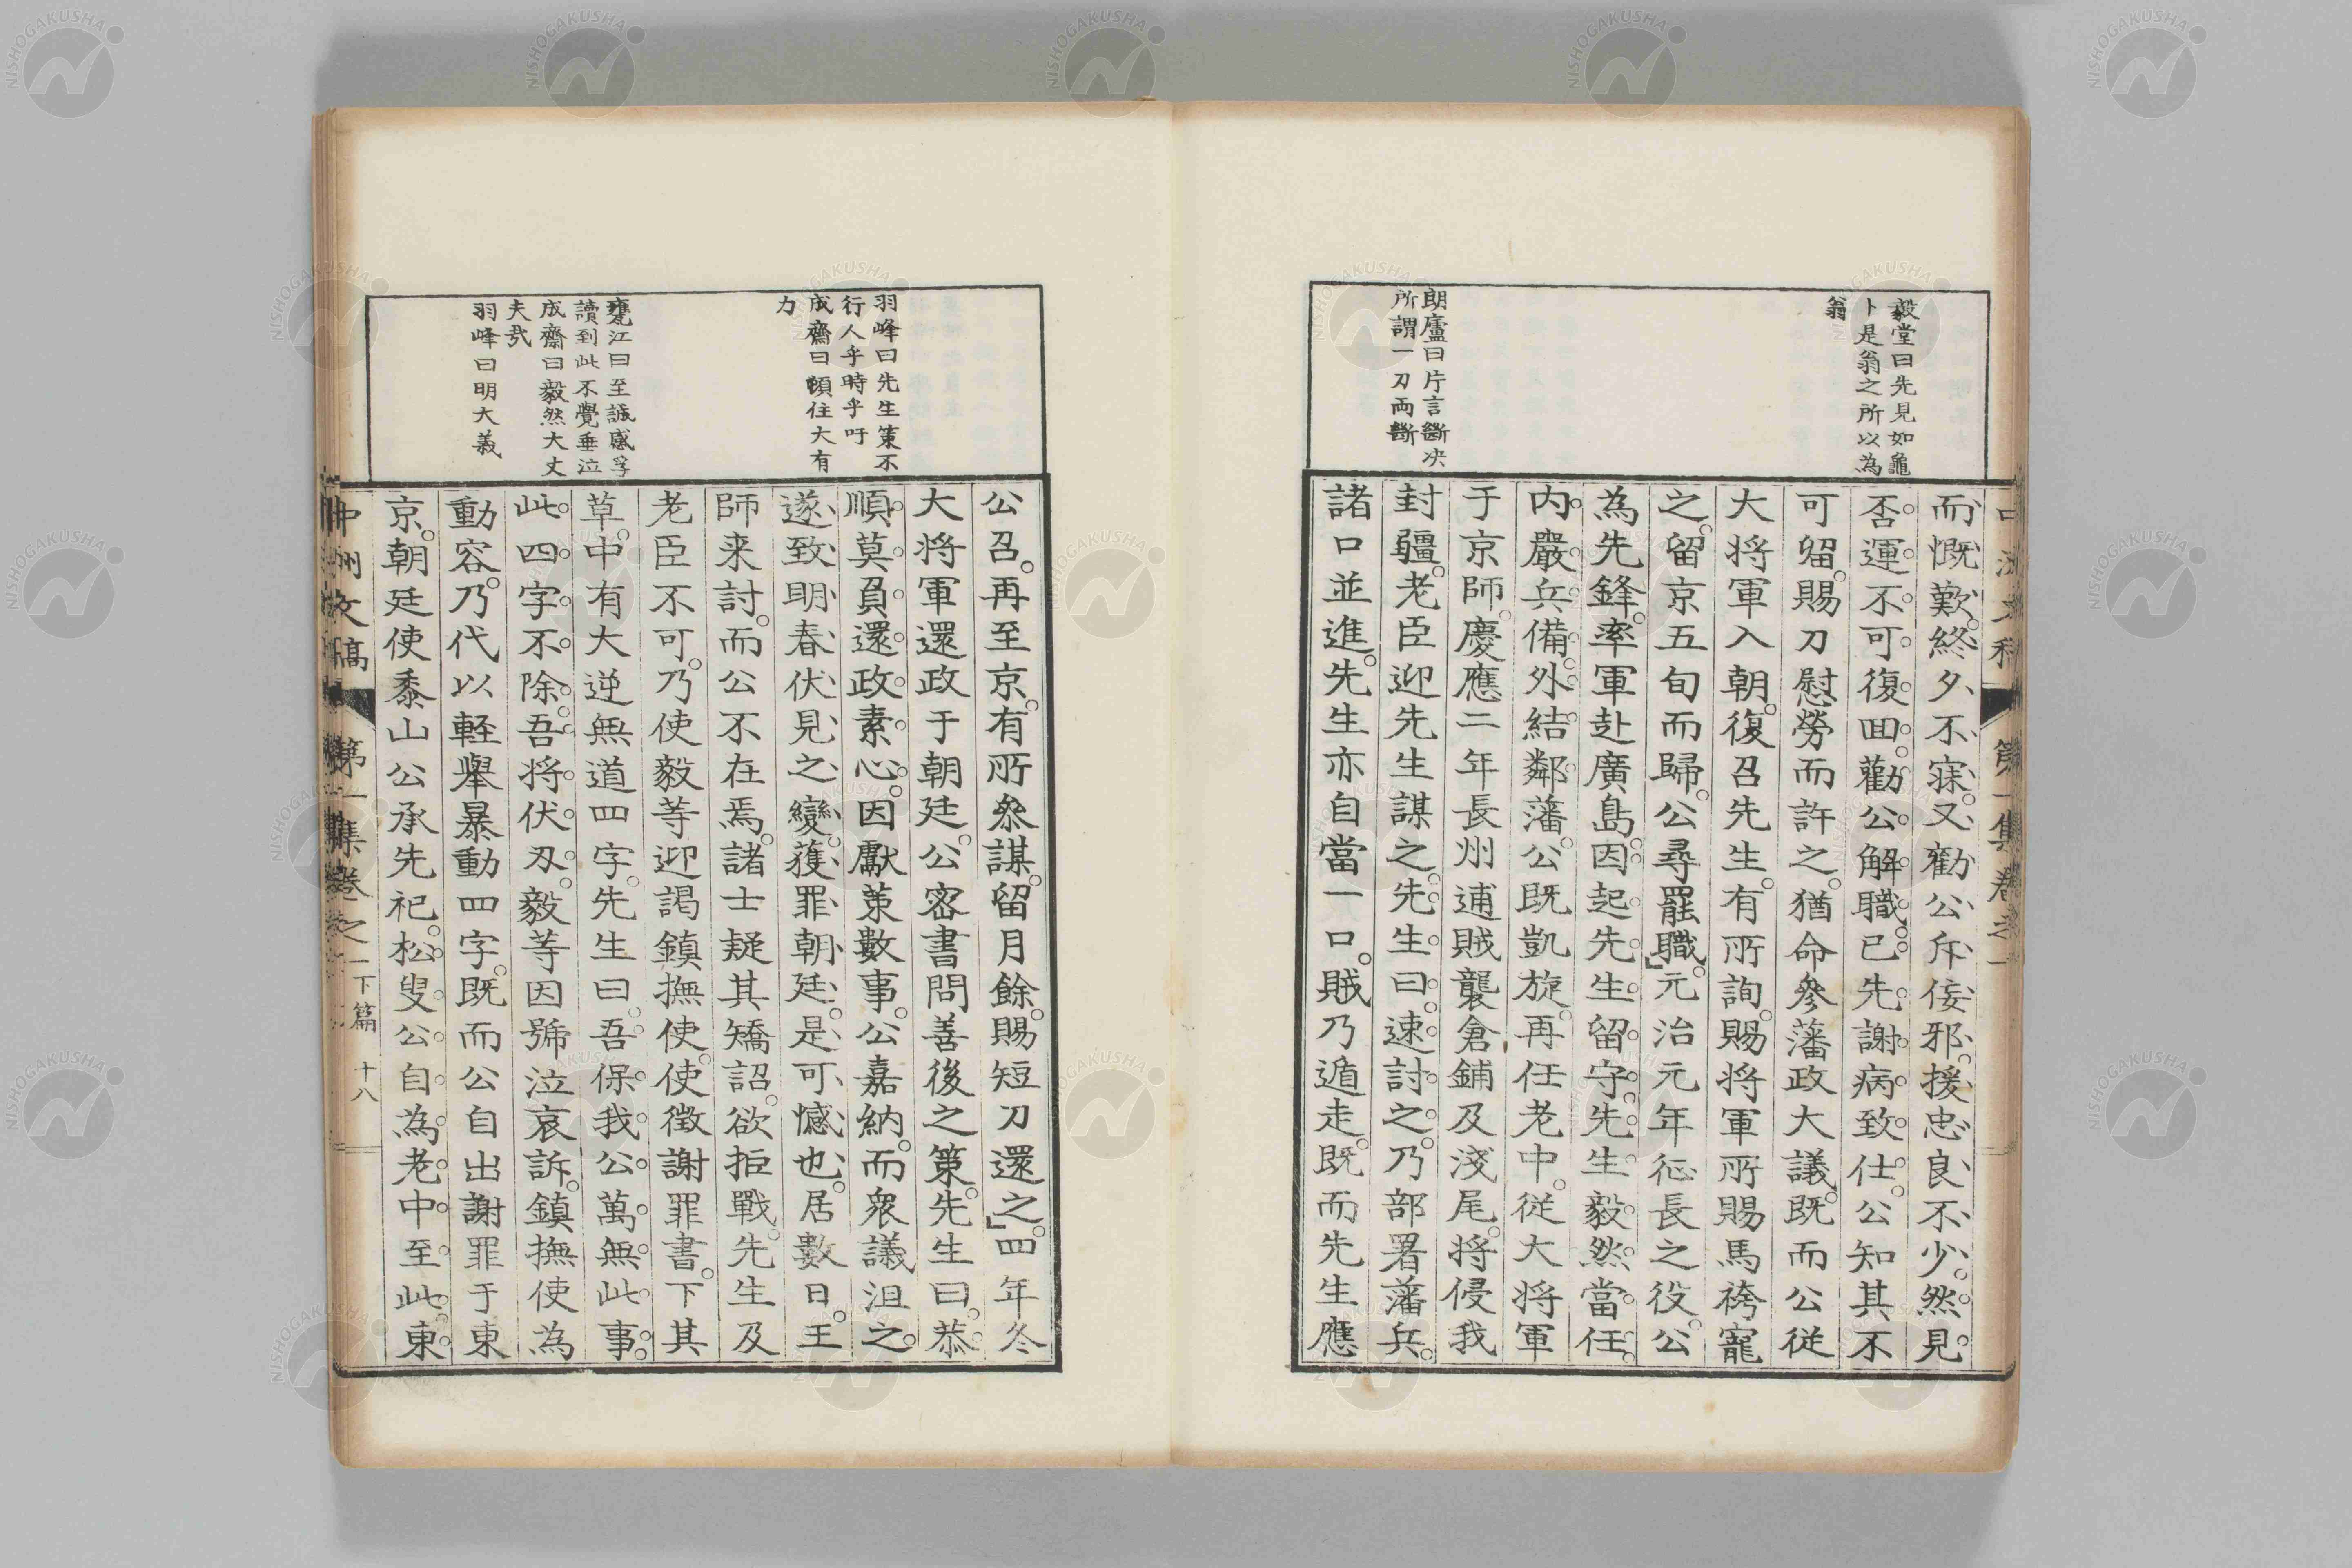 毅堂曰先見如龜
卜是翁之所以為
翁
朗廬曰片言斷决
所謂一刀両斷
而慨歎。終夕不寐。又勸公斥佞邪。援忠良不少。然見
否運不可復回。勸公解職。已先謝病致仕。公知其不
可留。賜刀慰勞而許之。猶命參藩政大議。既而公從
大將軍入朝。復召先生。有所詢。賜將軍所賜馬袴寵
之。留京五旬而歸。公尋罷職。」元治元年征長之役。公
為先鋒。率軍赴廣島。因起先生留守。先生毅然當任。
内嚴兵備。外結鄰藩。公既凱旋。再任老中。從大將軍
于京師。慶應二年長州逋賊襲倉鋪及淺尾。將侵我
封疆。老臣迎先生謀之。先生曰。速討之。乃部署藩兵。
諸口並進。先生亦自當一口。賊乃遁走。既而先生應
羽峰曰先生策不
行人乎時乎吁
成齋曰頓住大有
力
甕江曰至誠感孚
讀到此不覺垂泣
成齋曰毅然大丈
夫哉
羽峰曰明大義
公召。再至京。有所叅謀。留月餘。賜短刀還之。」四年冬
大將軍還政于朝廷。公密書問善後之策。先生曰。恭
順莫負還政素心。因獻策數事。公嘉納。而衆議沮之。
遂致明春伏見之變。獲罪朝廷。是可憾也。居數日。王
師来討。而公不在焉。諸士疑其矯詔。欲拒戰。先生及
老臣不可。乃使毅等迎謁鎮撫使。使徴謝罪書。下其
草。中有大逆無道四字。先生曰。吾保我公萬無此事。
此四字不除。吾將伏刃。毅等因號泣哀訴。鎮撫使為
動容。乃代以軽舉暴動四字。既而公自出謝罪于東
京。朝廷使黍山公承先祀。松叟公自為老中至此東
中州文稿 第一集卷之一 下篇 十八